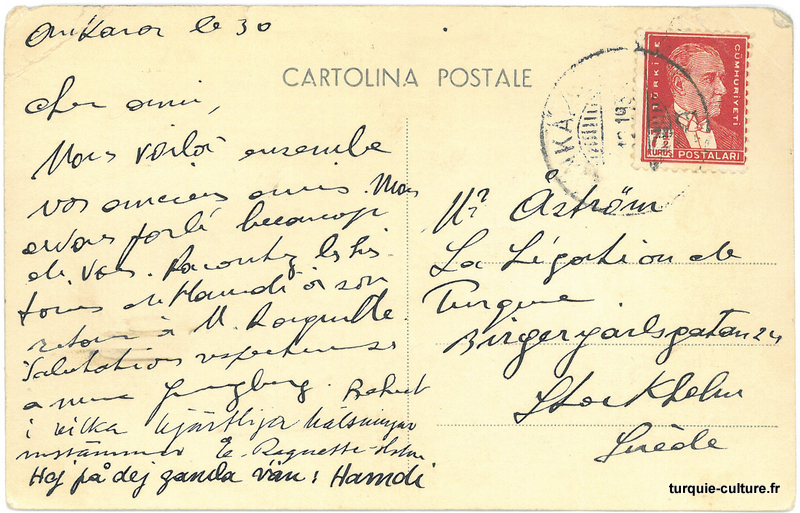 Ankara le 30
CARTOLINA POSTALE
TÜRKİYE
CÜMHURİYETİ
7½
KURUŞ POSTALARI
Cher ami,
Nous voilà ensemble
vos anciens amis. Nous
avons parlé beaucoup
de vous. Racontez les his-
toires de Hamdi à son
retour à M.
Salutations respectueuses
a mme Ljungberg.
i vilka hjärtliga hälsningar
instämmer E. Raquette-Holm
Hej på dej gamla vän! Hamdi
Mr Åström
La Légation de
Turquie
Birgerjarlsgatan 24
Stockholm
Suède
turquie-culture.fr